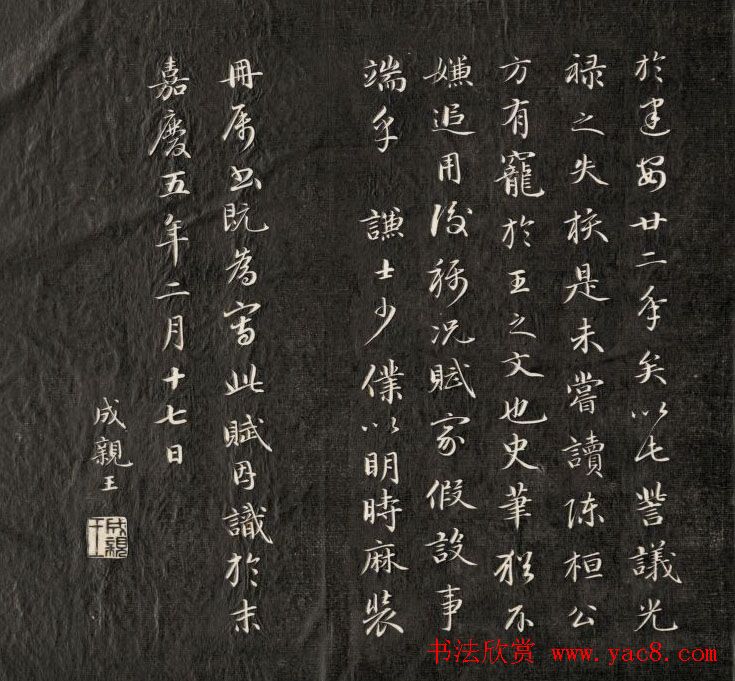 於建安廿二年矣以此訾議光
禄之失核是未嘗讀陳桓公
方有寵於王之文也史筆猶不
嫌追用後稱况賦家假設事
端乎 謙士少僕以明時麻裝
冊属書既為寫此賦因識於末
嘉慶五年二月十七日
成親王
成親王
书法欣赏 www.yac8.com